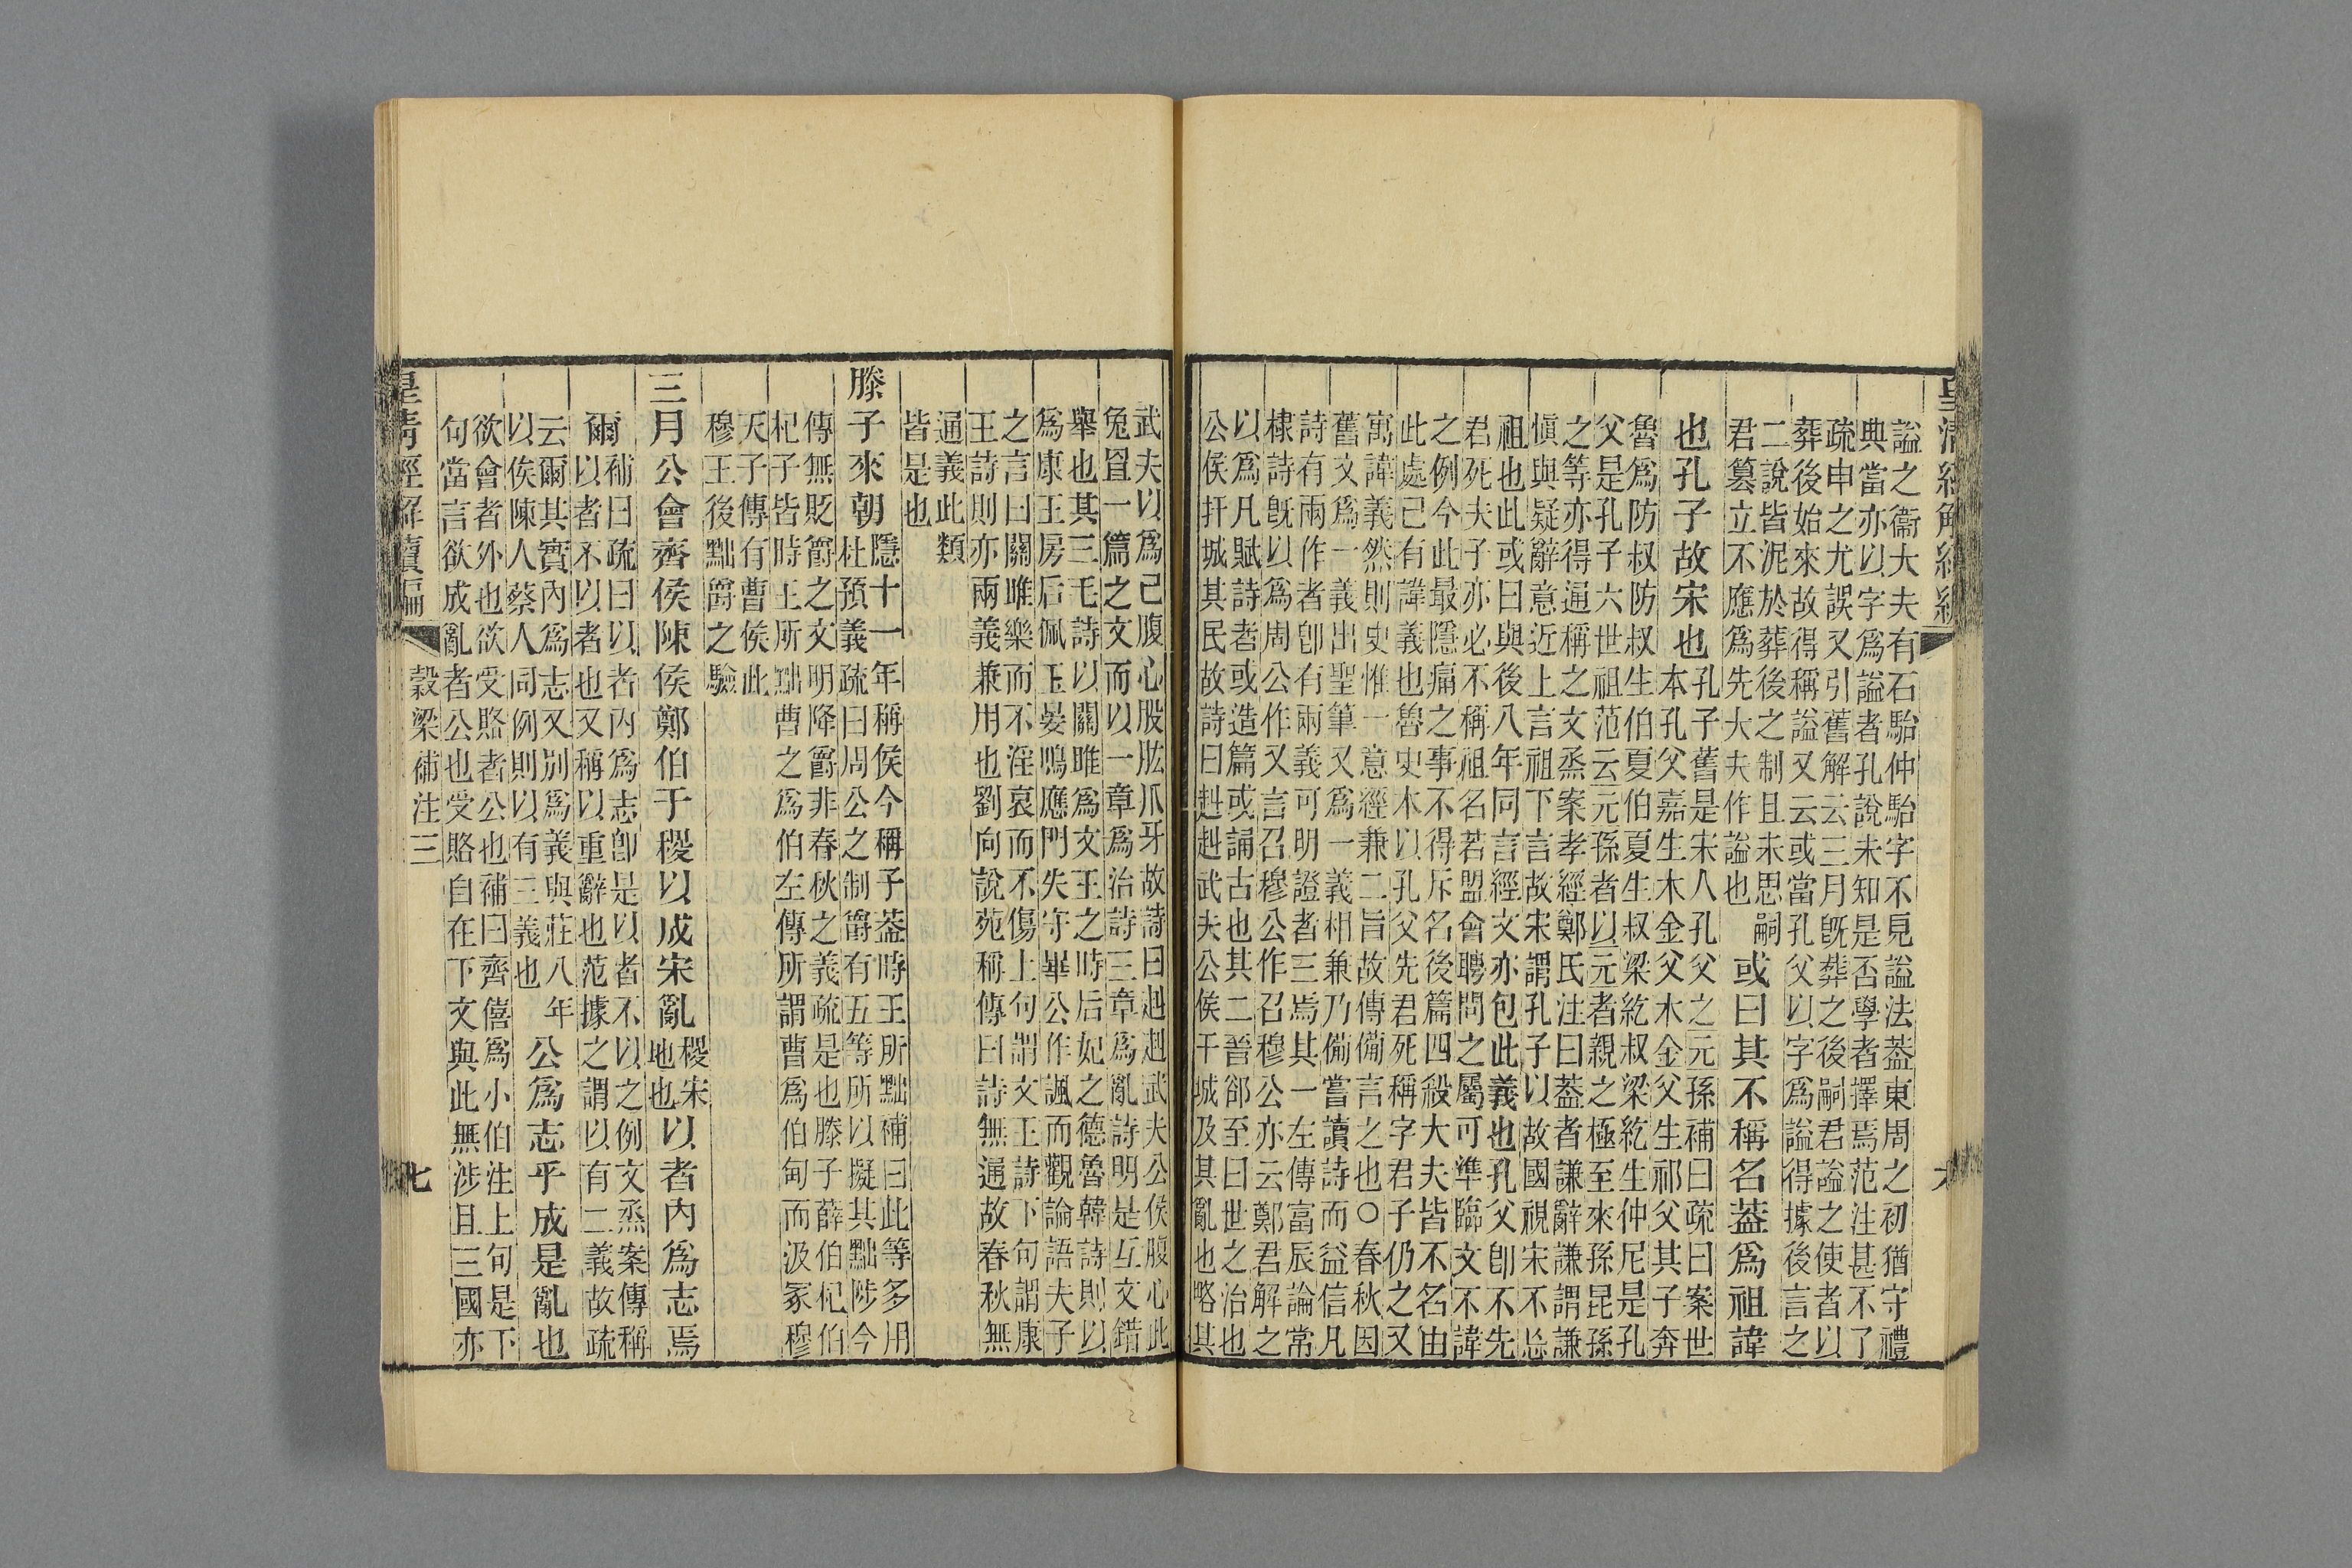 皇清經解續編
六
謚之衞大夫有石駘仲駘字不見謚法葢東周之初猶守禮
典當亦以字爲謚者孔說未知是否學者擇焉范注甚不了
疏申之尤誤又引舊解云三月旣葬之後嗣君謚之使者以
葬後始來故得稱謚又云或當孔父以字爲謚得據後言之
二說皆泥於葬後之制且未思嗣
君簒立不應爲先大夫作謚也
或曰其不稱名葢爲祖諱
也孔子故宋也
孔子舊是宋人孔父之元孫補曰疏曰案世
本孔父嘉生木金父木金父生祁父其子奔
魯爲防叔防叔生伯夏伯夏生叔梁紇叔梁紇生仲尼是孔
父是孔子六世祖范云元孫者以元者親之極至來孫昆孫
之等亦得通稱之文烝案孝經鄭氏注曰葢者謙辭謙謂謙
愼與疑辭意近上言祖下言故宋謂孔子以故國視宋不忘
祖也此或曰與後八年同言經文亦包此義也孔父卽不先
君死夫子亦必不稱祖名若盟會聘問之屬可準臨文不諱
之例今此最隱痛之事不得斥名後篇四殺大夫皆不名由
此處已有諱義也魯史本以孔父先君死稱字君子仍之又
寓諱義然則史惟一意經兼二旨故傳備言之也○春秋因
舊文爲一義出聖筆又爲一義相兼乃備嘗讀詩而益信凡
詩有兩作者卽有兩義可明證者三焉其一左傳富辰論常
棣詩旣以爲周公作又言召穆公作召穆公亦云鄭君解之
以爲凡賦詩者或造篇或誦古也其二晉郤至曰世之治也
公侯扞城其民故詩曰赳赳武夫公侯干城及其亂也略其
武夫以爲己腹心股肱爪牙故詩曰赳赳武夫公侯腹心此
兔罝一篇之文而以一章爲治詩三章爲亂詩明是互文錯
舉也其三毛詩以關雎爲文王之時后妃之德魯韓詩則以
爲康王房后佩玉晏鳴應門失守畢公作諷而觀論語夫子
之言曰關雎樂而不淫哀而不傷上句謂文王詩下句謂康
王詩則亦兩義兼用也劉向說苑稱傳曰詩無通故春秋無
通義此類
皆是也
滕子來朝
隱十一年稱侯今稱子葢時王所黜補曰此等多用
杜預義疏曰周公之制爵有五等所以擬其黜陟今
傳無貶爵之文明降爵非春秋之義疏是也滕子薛伯杞伯
杞子皆時王所黜曹之爲伯左傳所謂曹爲伯甸而汲冢穆
天子傳有曹侯此
穆王後黜爵之驗
三月公會齊侯陳侯鄭伯于稷以成宋亂
稷宋
地也
以者內爲志焉
爾
補曰疏曰以者內爲志卽是以者不以之例文烝案傳稱
以者不以者也又稱以重辭也范據之謂以有二義故疏
云爾其實內爲志又別爲義與莊八年
以侯陳人蔡人同例則以有三義也
公爲志乎成是亂也
欲會者外也欲受賂者公也補曰齊僖爲小伯注上句是下
句當言欲成亂者公也受賂自在下文與此無涉且三國亦
皇清經解續編
穀梁補注三
七